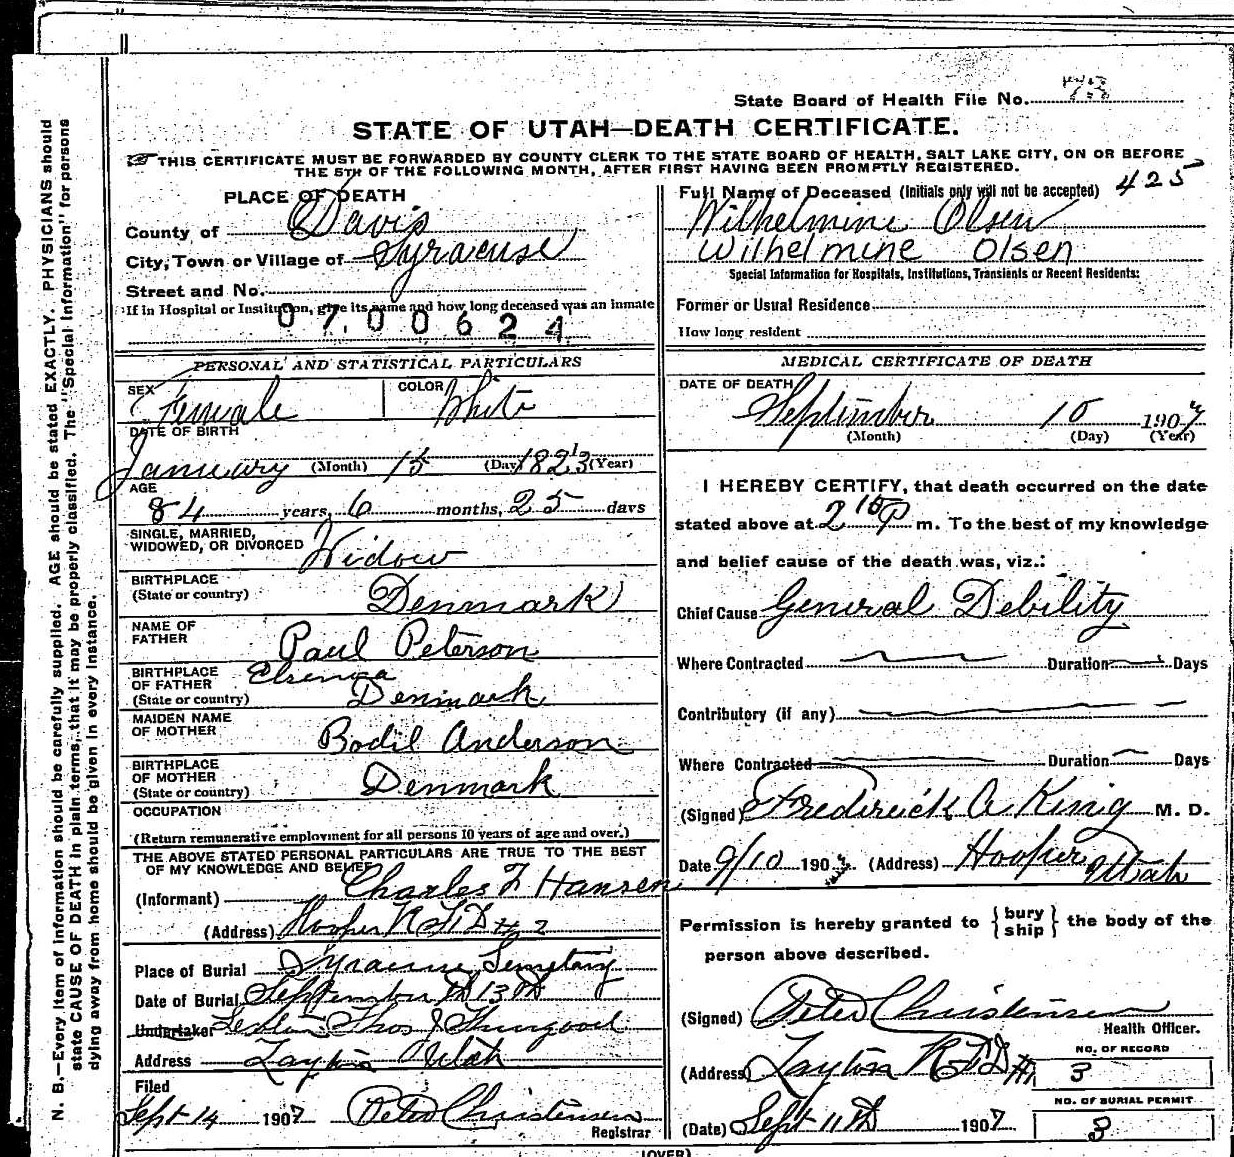 State Board of Health File No.
STATE OF UTAH—DEATH CERTIFICATE.
THIS CERTIFICATE MUST BE FORWARDED BY COUNTY CLERK TO THE STATE BOARD OF HEALTH, SALT LAKE CITY, ON OR BEFORE
THE 5TH OF THE FOLLOWING MONTH, AFTER FIRST HAVING BEEN PROMPTLY REGISTERED.
PLACE OF DEATH
County of Davis
City, Town or Village of Syracuse
Street and No.
If in Hospital or Institution, give its name and how long deceased was an inmate
07.00624
Full Name of Deceased (Initials only will not be accepted) 425
Wilhelmine Olsen
Wilhelmine Olsen
Special Information for Hospitals, Institutions, Transients or Recent Residents:
Former or Usual Residence
How long resident
PERSONAL AND STATISTICAL PARTICULARS
SEX Female COLOR White
DATE OF BIRTH
January (Month) 15 (Day) 1823 (Year)
AGE
84 years, 6 months, 25 days
SINGLE, MARRIED,
WIDOWED, OR DIVORCED Widow
BIRTHPLACE
(State or country) Denmark
NAME OF
FATHER Paul Peterson
BIRTHPLACE
OF FATHER
(State or country) Denmark
MAIDEN NAME
OF MOTHER Bodil Anderson
BIRTHPLACE
OF MOTHER
(State or country) Denmark
OCCUPATION
(Return remunerative employment for all persons 10 years of age and over.)
THE ABOVE STATED PERSONAL PARTICULARS ARE TRUE TO THE BEST
OF MY KNOWLEDGE AND BELIEF
(Informant) Charles F Hansen
(Address) Hooper R F D # 2
Place of Burial Syracuse Semetary
Date of Burial September th 13th
Undertaker Thos J Thurgood
Address Layton Utah
Filed
Sept 14 1907 Peter Christensen
Registrar
MEDICAL CERTIFICATE OF DEATH
DATE OF DEATH
September 10 1907
(Month) (Day) (Year)
I HEREBY CERTIFY, that death occurred on the date
stated above at 2 15 P m. To the best of my knowledge
and belief cause of the death was, viz.:
Chief Cause General Debility
Where Contracted Duration Days
Contributory (if any)
Where Contracted Duration Days
(Signed) Frederick A King M. D.
Date 9/10 190 (Address) Hooper Utah
Permission is hereby granted to {bury
ship} the body of the
person above described.
(Signed) Peter Christensen
Health Officer.
(Address) Layton R F D #1
NO. OF RECORD
3
NO. OF BURIAL PERMIT
3
(Date) Sept 11th 1907
(OVER)
N. B.—Every item of information should be carefully supplied. AGE should be stated EXACTLY. PHYSICIANS should
state CAUSE OF DEATH in plain terms, that it may be properly classified. The "Special Information" for persons
dying away from home should be given in every instance.